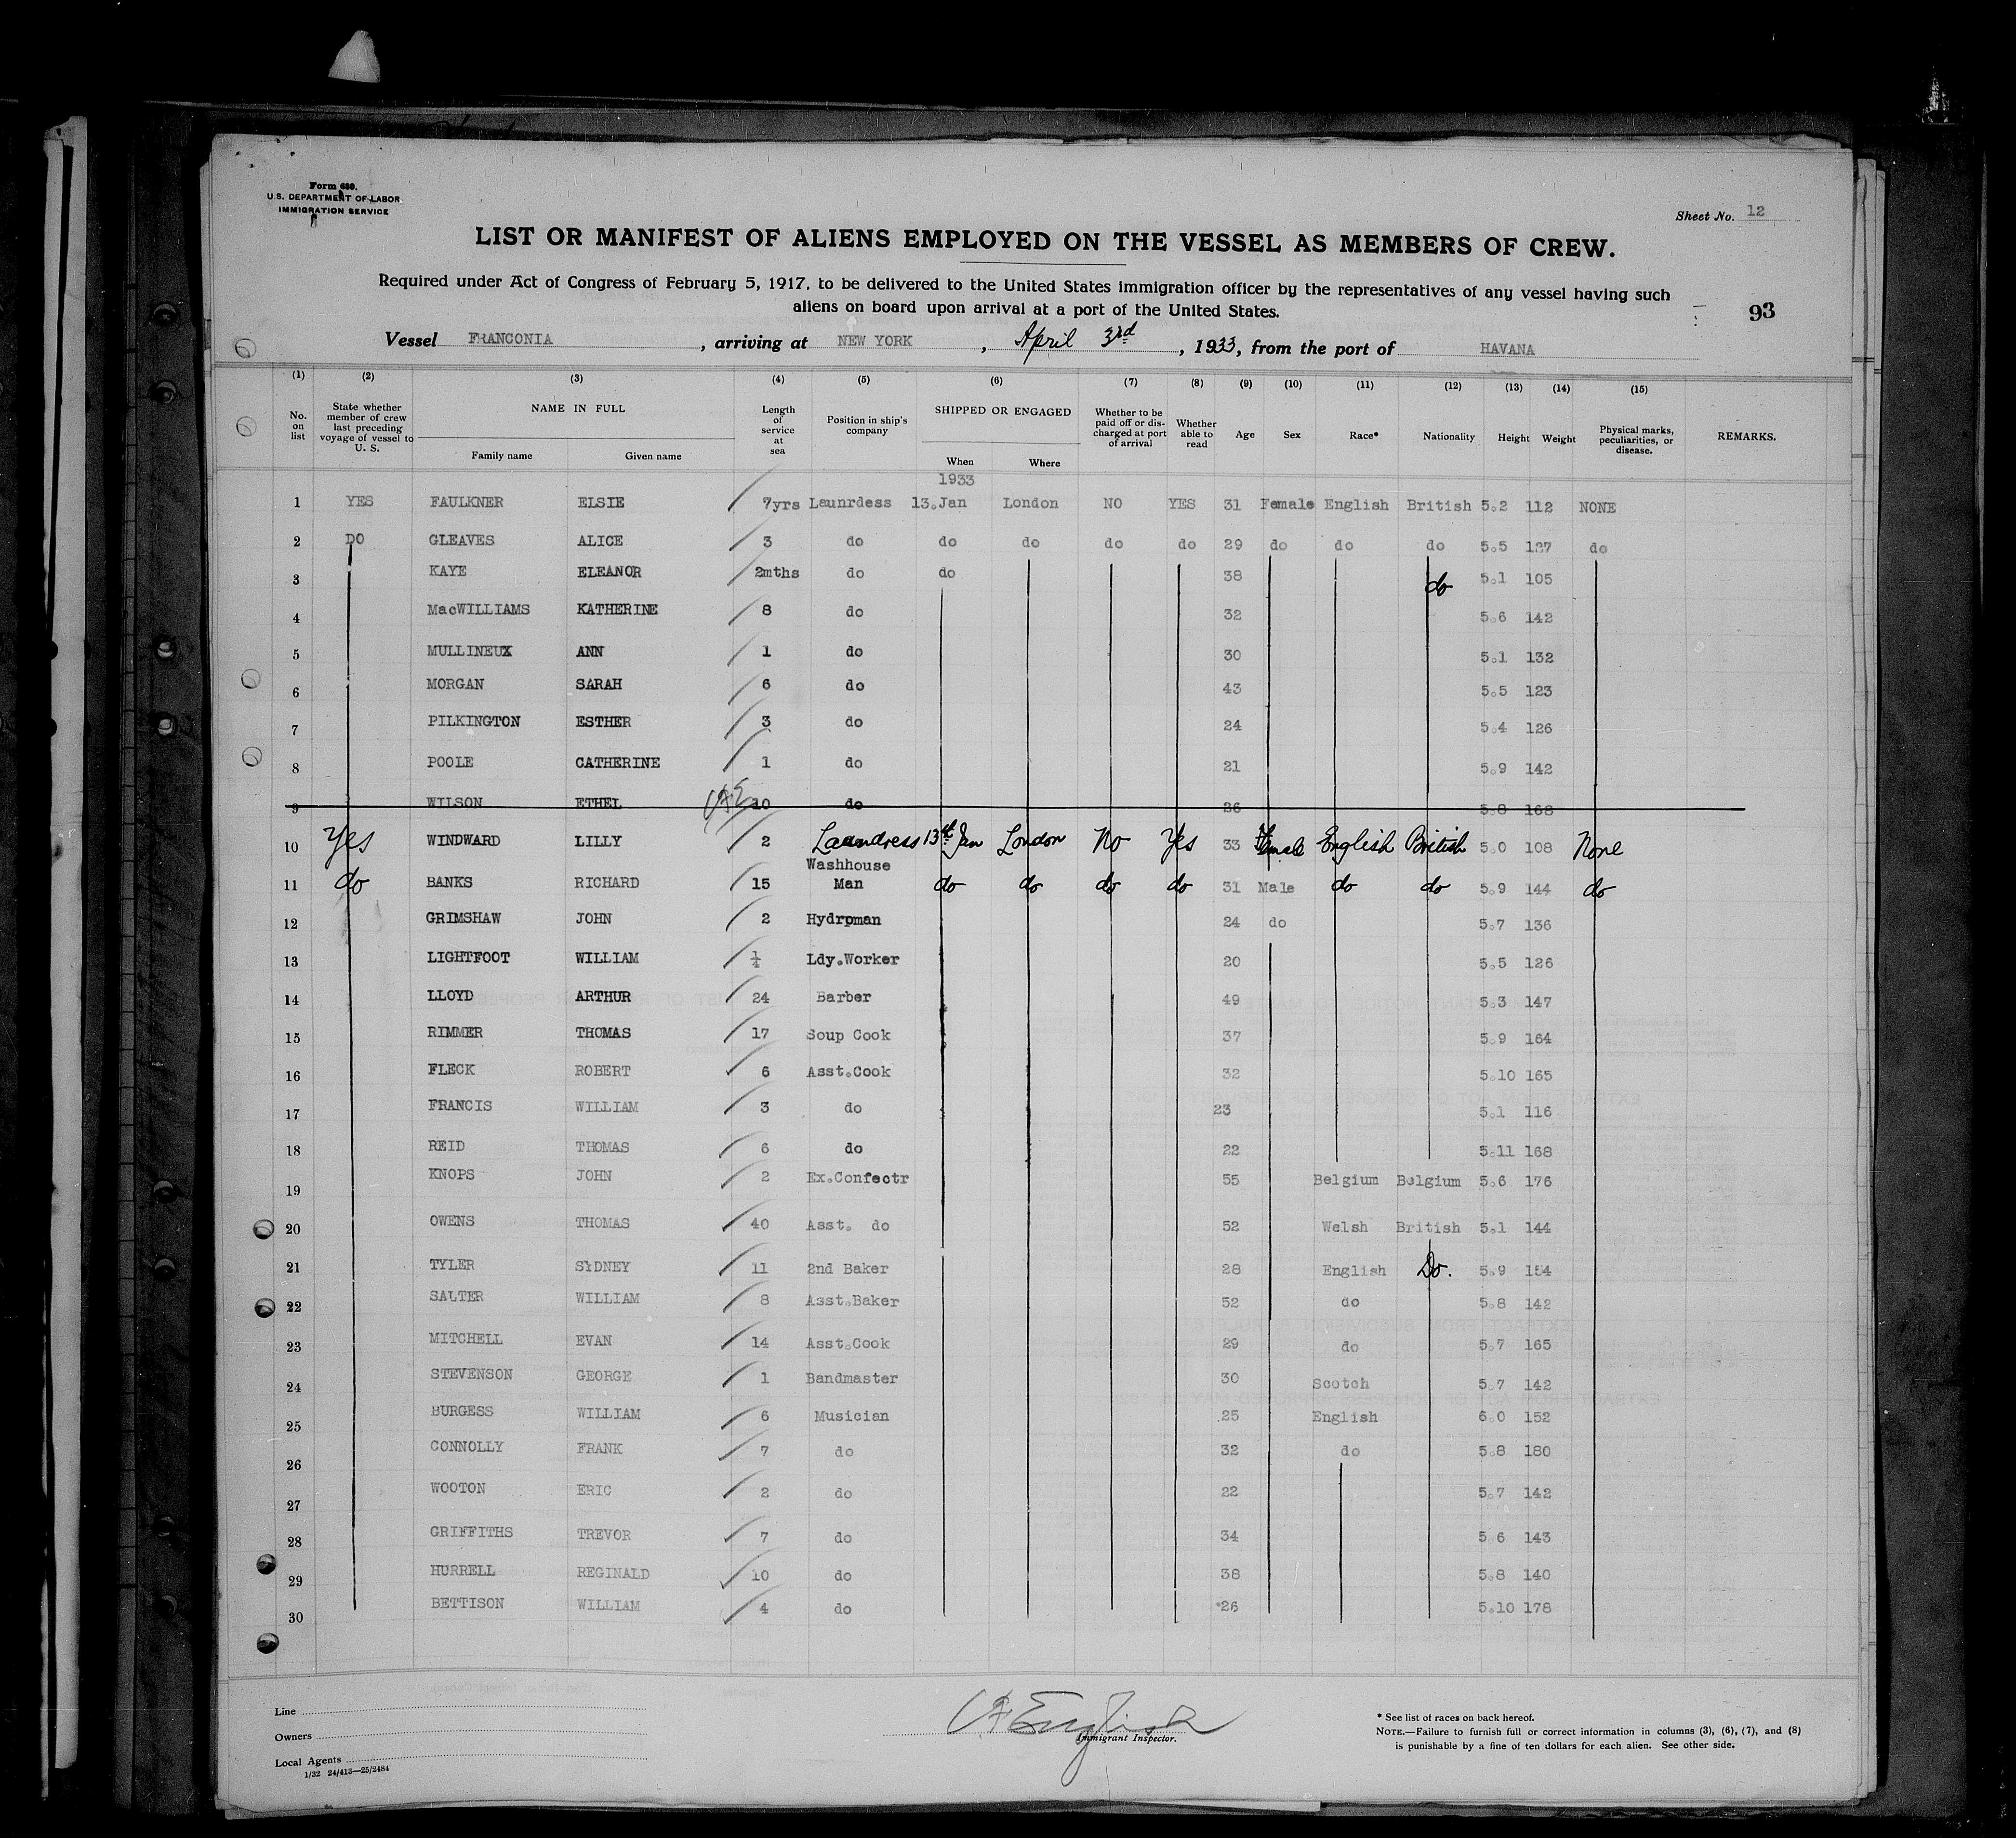 Form 680.
U.S. DEPARTMENT OF LABOR
IMMIGRATION SERVICE
Sheet No. 12
LIST OR MANIFEST OF ALIENS EMPLOYED ON THE VESSEL AS MEMBERS OF CREW.
Required under Act of Congress of February 5, 1917, to be delivered to the United States immigration officer by the representatives of any vessel having such
aliens on board upon arrival at a port of the United States.
93
Vessel FRANCONIA, arriving at NEW YORK, April 3rd, 1933, from the port of HAVANA
(1) (2) (3) (4) (5) (6) (7) (8) (9) (10) (11) (12) (13) (14) (15)
No. on list | State whether member of crew last preceding voyage of vessel to U. S. | NAME IN FULL | Length of service at sea | Position in ship's company | SHIPPED OR ENGAGED | Whether to be paid off or discharged at port of arrival | Whether able to read | Age | Sex | Race* | Nationality | Height | Weight | Physical marks, peculiarities, or disease. | REMARKS.
Family name Given name When Where
1933
1 YES FAULKNER ELSIE 7yrs Launrdess 13.Jan London NO YES 31 Female English British 5.2 112 NONE
2 DO GLEAVES ALICE 3 do do do do do 29 do do do 5.5 127 do
3 KAYE ELEANOR 2mths do do 38 do 5.1 105
4 MacWILLIAMS KATHERINE 8 do 32 5.6 142
5 MULLINEUX ANN 1 do 30 5.1 132
6 MORGAN SARAH 6 do 43 5.5 123
7 PILKINGTON ESTHER 3 do 24 5.4 126
8 POOLE CATHERINE 1 do 21 5.9 142
9 WILSON ETHEL 10 do 26 5.8 168
10 Yes WINDWARD LILLY 2 Laundress 13th Jan London No Yes 33 Female English British 5.0 108 None
11 do BANKS RICHARD 15 Washhouse Man do do do do 31 Male do do 5.9 144 do
12 GRIMSHAW JOHN 2 Hydroman 24 do 5.7 136
13 LIGHTFOOT WILLIAM ¼ Ldy.Worker 20 5.5 126
14 LLOYD ARTHUR 24 Barber 49 5.3 147
15 RIMMER THOMAS 17 Soup Cook 37 5.9 164
16 FLECK ROBERT 6 Asst.Cook 32 5.10 165
17 FRANCIS WILLIAM 3 do 23 5.1 116
18 REID THOMAS 6 do 22 5.11 168
19 KNOPS JOHN 2 Ex.Confectr 55 Belgium Belgium 5.6 176
20 OWENS THOMAS 40 Asst. do 52 Welsh British 5.1 144
21 TYLER SYDNEY 11 2nd Baker 28 English Do. 5.9 154
22 SALTER WILLIAM 8 Asst.Baker 52 do 5.8 142
23 MITCHELL EVAN 14 Asst.Cook 29 do 5.7 165
24 STEVENSON GEORGE 1 Bandmaster 30 Scotch 5.7 142
25 BURGESS WILLIAM 6 Musician 25 English 6.0 152
26 CONNOLLY FRANK 7 do 32 do 5.8 180
27 WOOTON ERIC 2 do 22 5.7 142
28 GRIFFITHS TREVOR 7 do 34 5 6 143
29 HURRELL REGINALD 10 do 38 5.8 140
30 BETTISON WILLIAM 4 do 26 5.10 178
Line
Owners
Local Agents
1/32 24/413—25/2484
English
Immigrant Inspector.
* See list of races on back hereof.
NOTE.—Failure to furnish full or correct information in columns (3), (6), (7), and (8)
is punishable by a fine of ten dollars for each alien. See other side.